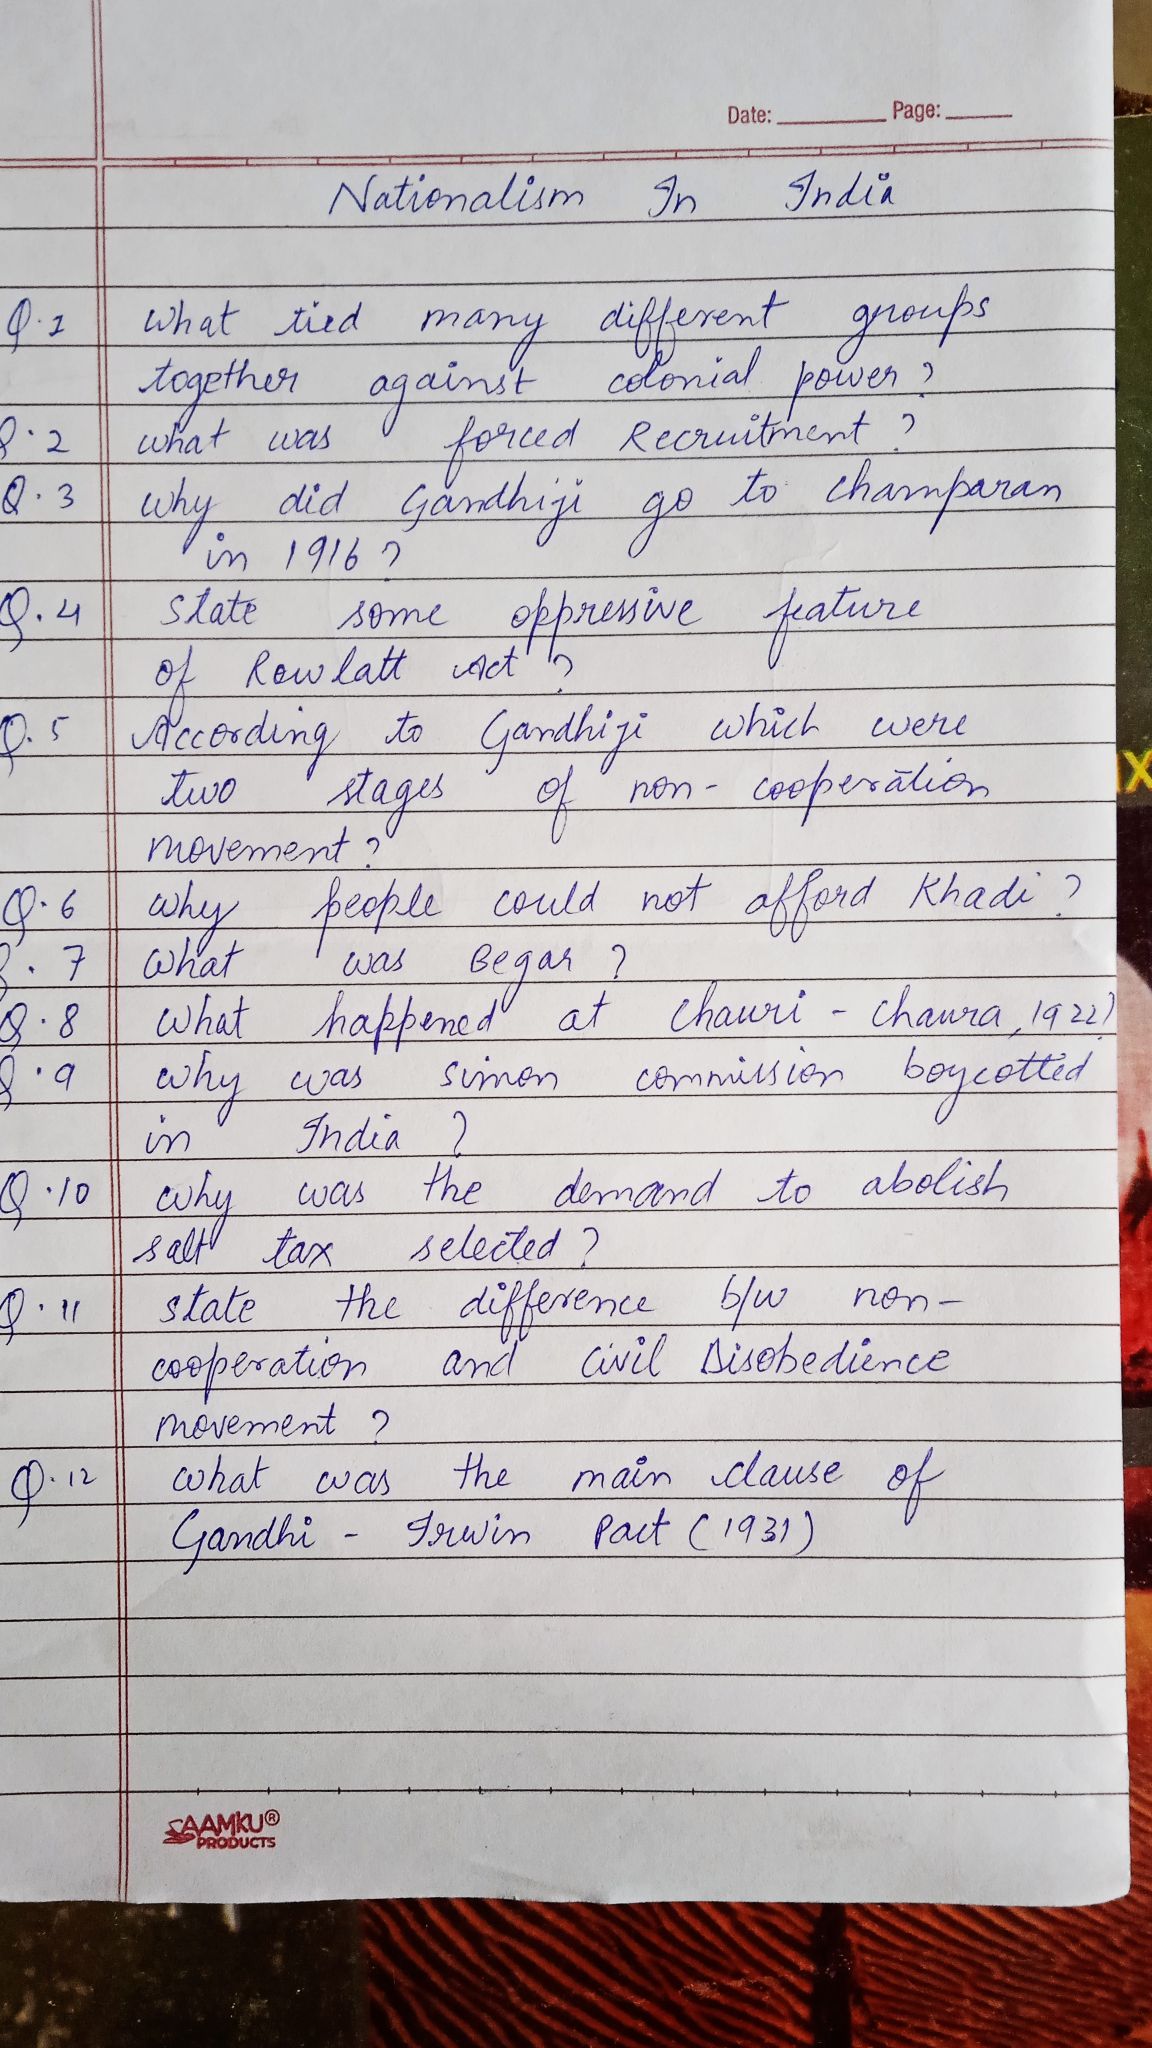 Date: Page:
Nationalism In India
Q.1 What tied many different groups
together against colonial power?
Q.2 what was forced Recruitment?
Q.3 why did Gandhiji go to champaran
in 1916?
Q.4 state some oppressive feature
of Rowlatt Act?
Q.5 According to Gandhiji which were
two stages of non-cooperation
movement?
Q.6 why people could not afford Khadi?
Q.7 What was Begar?
Q.8 What happened at Chauri-Chaura, 1922?
Q.9 why was simon commission boycotted
in India?
Q.10 why was the demand to abolish
salt tax selected?
Q.11 state the difference b/w non-
cooperation and Civil Disobedience
movement?
Q.12 what was the main clause of
Gandhi-Irwin Pact (1931)
AAMKU®
PRODUCTS